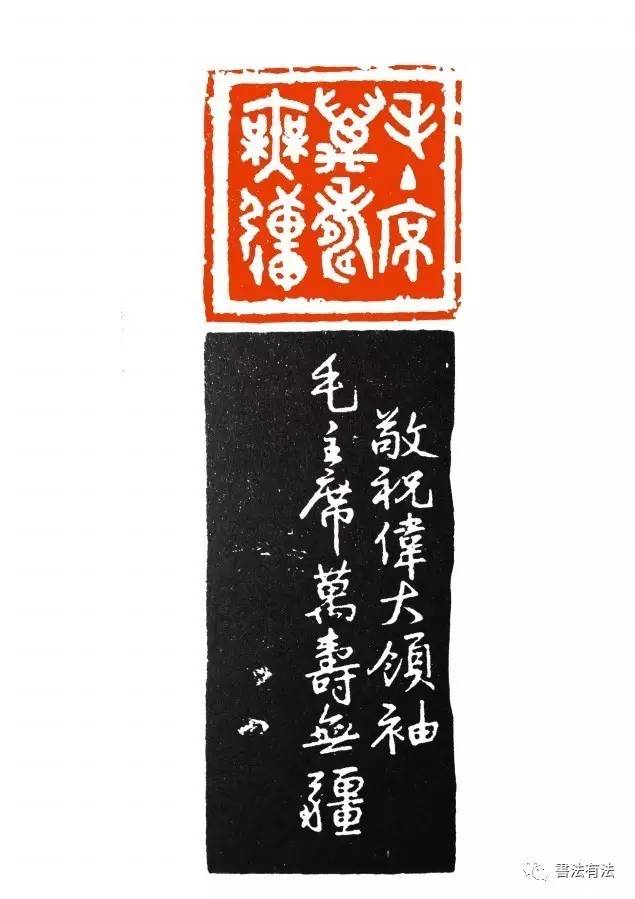 毛主席
萬壽
無疆
敬祝偉大領袖
毛主席萬壽無疆
書法有法